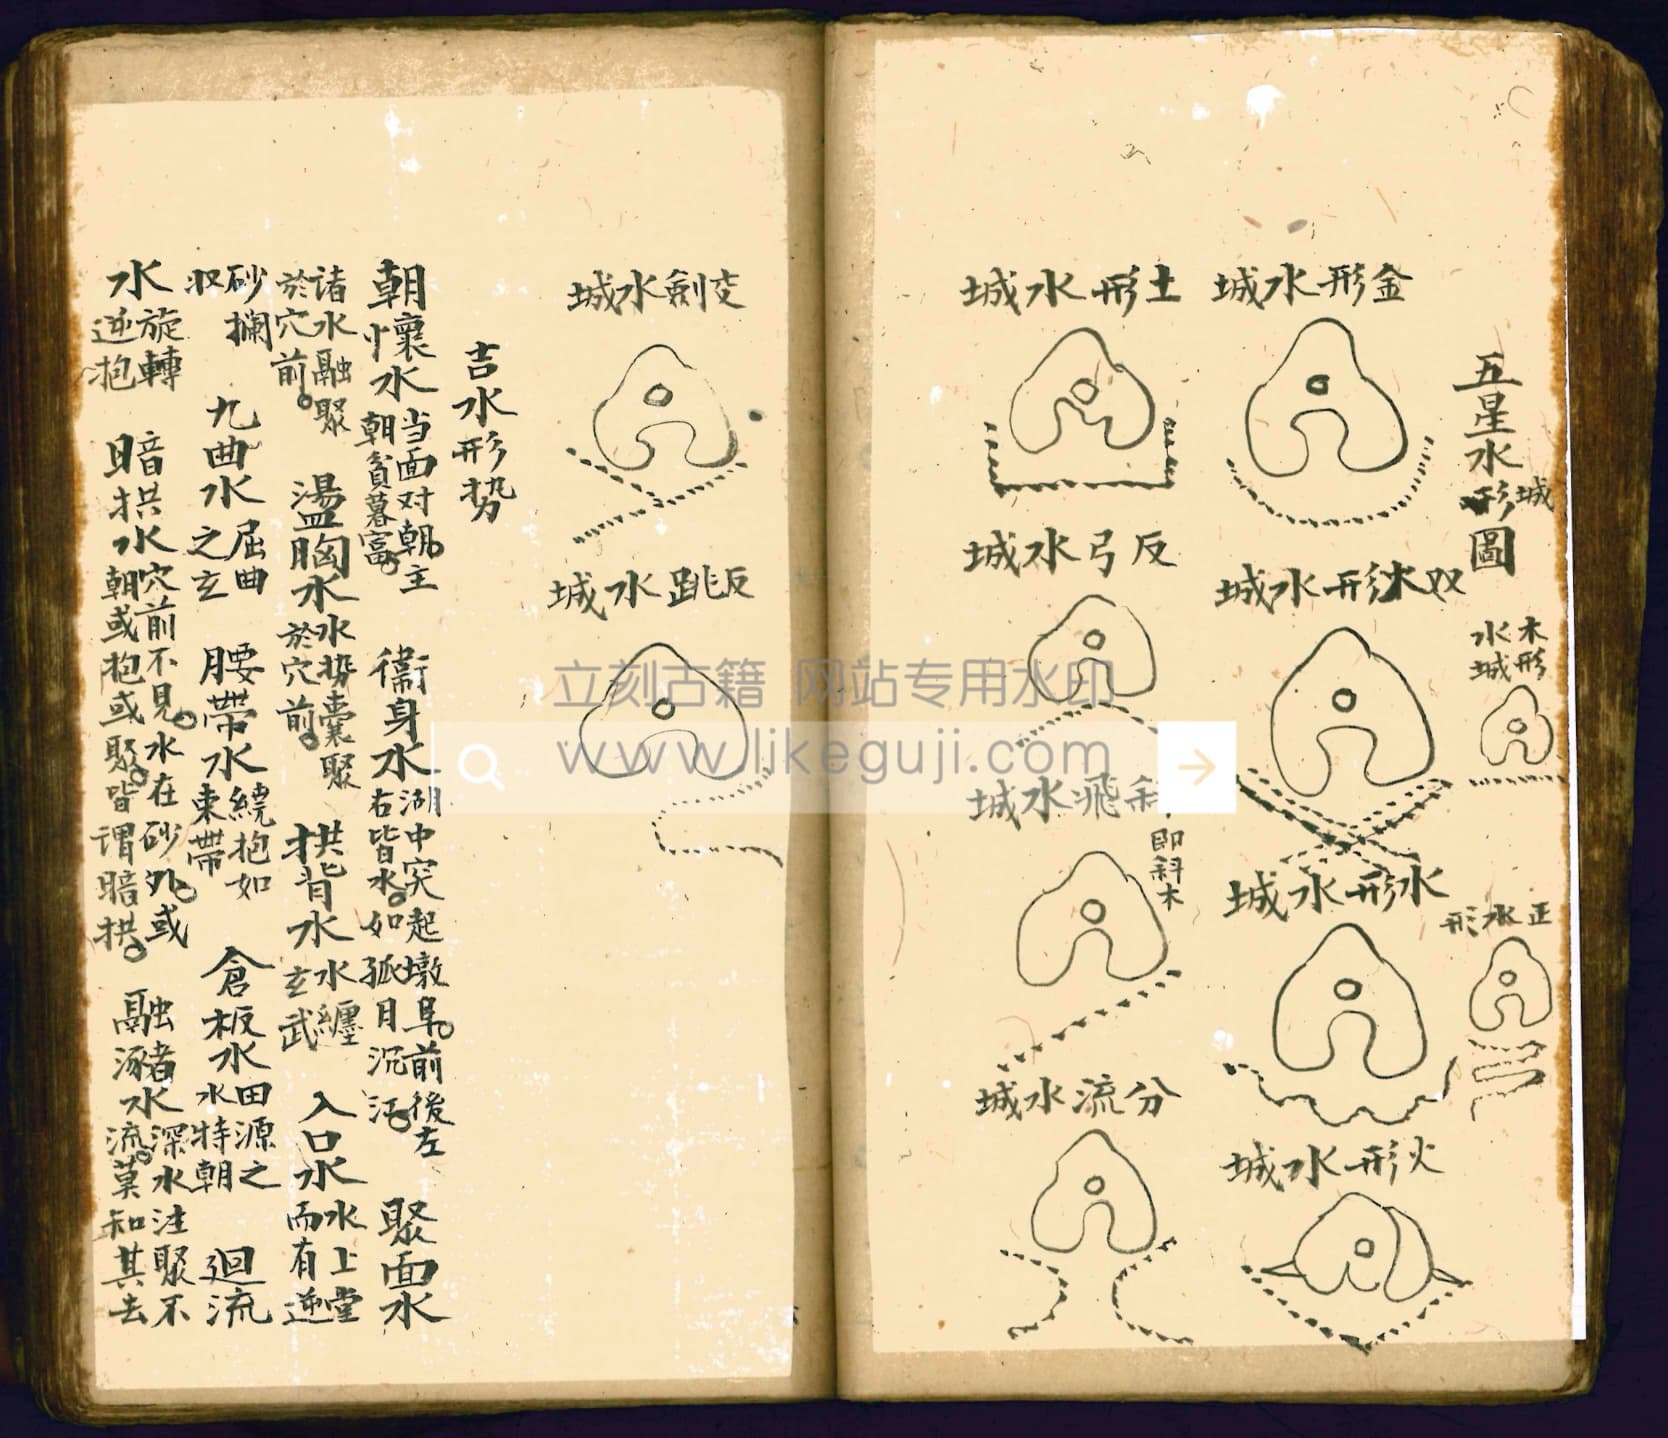 五星水城形圖
木形水城
正水形
金形水城
双木形水城
水形水城
火形水城
土形水城
反弓水城
斜飛水城
即斜木
分流水城
交劍水城
反跳水城
吉水形势
朝懷水 当面对朝。主朝貧暮富。 衞身水 湖中突起墩阜。前後左右皆水。如孤月沉江。 聚面水
諸水融聚於穴前。 盪胸水 水势囊聚於穴前。 拱背水 水纏玄武 入口水 水上堂而有逆
砂攔収 九曲水 屈曲之玄 腰帶水 繞抱如束帶 倉板水 田源之水特朝 廻流
水 旋轉逆抱 暗拱水 穴前不見。水在砂外。或朝或抱或聚。皆謂暗拱。 融瀦水 深水注聚不流。莫知其去
立刻古籍 网站专用水印
www.likeguji.com